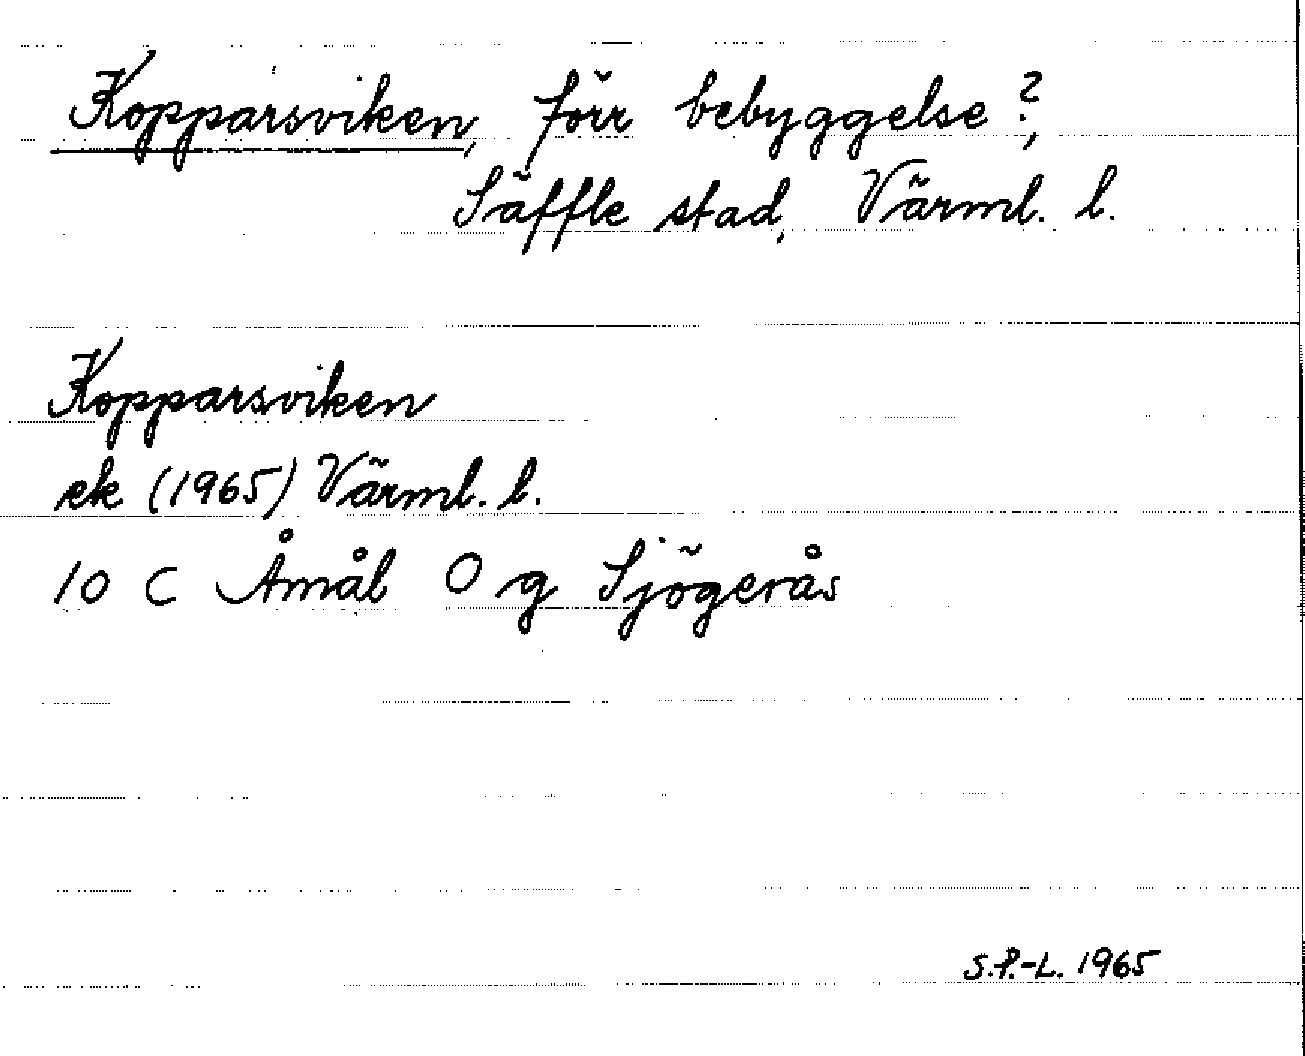 Kopparsviken, förr bebyggelse?,
Säffle stad, Värml. l.
Kopparsviken
ek (1965) Värml. l.
10 C Åmål O g Sjögerås
S.P.-L. 1965